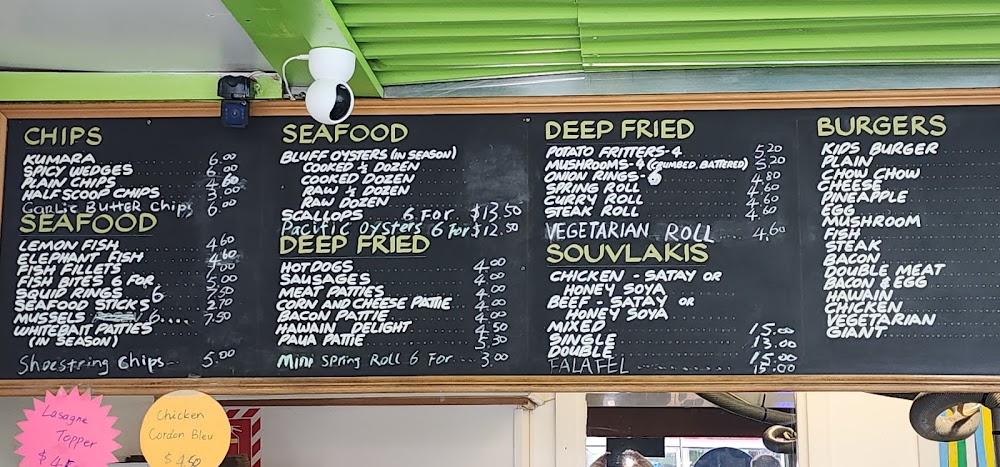 CHIPS
KUMARA 6.00
SPICY WEDGES 6.00
PLAIN CHIPS 4.60
HALF SCOOP CHIPS 3.00
Garlic Butter Chips 6.00
SEAFOOD
LEMON FISH 4.60
ELEPHANT FISH 4.60
FISH FILLETS 7.00
FISH BITES 6 FOR 5.00
SQUID RINGS 6
SEAFOOD STICKS 2.70
MUSSELS 6.... 7.50
WHITEBAIT PATTIES
(IN SEASON)
Shoestring Chips 5.00
SEAFOOD
BLUFF OYSTERS (IN SEASON)
COOKED ½ DOZEN
COOKED DOZEN
RAW ½ DOZEN
RAW DOZEN
SCALLOPS 6 FOR $13.50
Pacific oysters 6 for $12.50
DEEP FRIED
HOTDOGS 4.00
SAUSAGES 4.00
MEAT PATTIES 4.00
CORN AND CHEESE PATTIE 4.00
BACON PATTIE 4.00
HAWAIN DELIGHT 4.50
PAUA PATTIE 5.30
Mini Spring Roll 6 For ... 3.00
DEEP FRIED
POTATO FRITTERS-4 5.20
MUSHROOMS-4 (CRUMBED, BATTERED) 5.20
ONION RINGS-6 4.80
SPRING ROLL 4.60
CURRY ROLL 4.60
STEAK ROLL 4.60
VEGETARIAN ROLL 4.60
SOUVLAKIS
CHICKEN - SATAY OR
HONEY SOYA
BEEF - SATAY OR
HONEY SOYA
MIXED 15.00
SINGLE 13.00
DOUBLE 15.00
FALAFEL 15.00
BURGERS
KIDS BURGER
PLAIN
CHOW CHOW
CHEESE
PINEAPPLE
EGG
MUSHROOM
FISH
STEAK
BACON
DOUBLE MEAT
BACON & EGG
HAWAIN
CHICKEN
VEGETARIAN
GIANT
Lasagne
Topper
Chicken
Cordon Bleu
$4.50